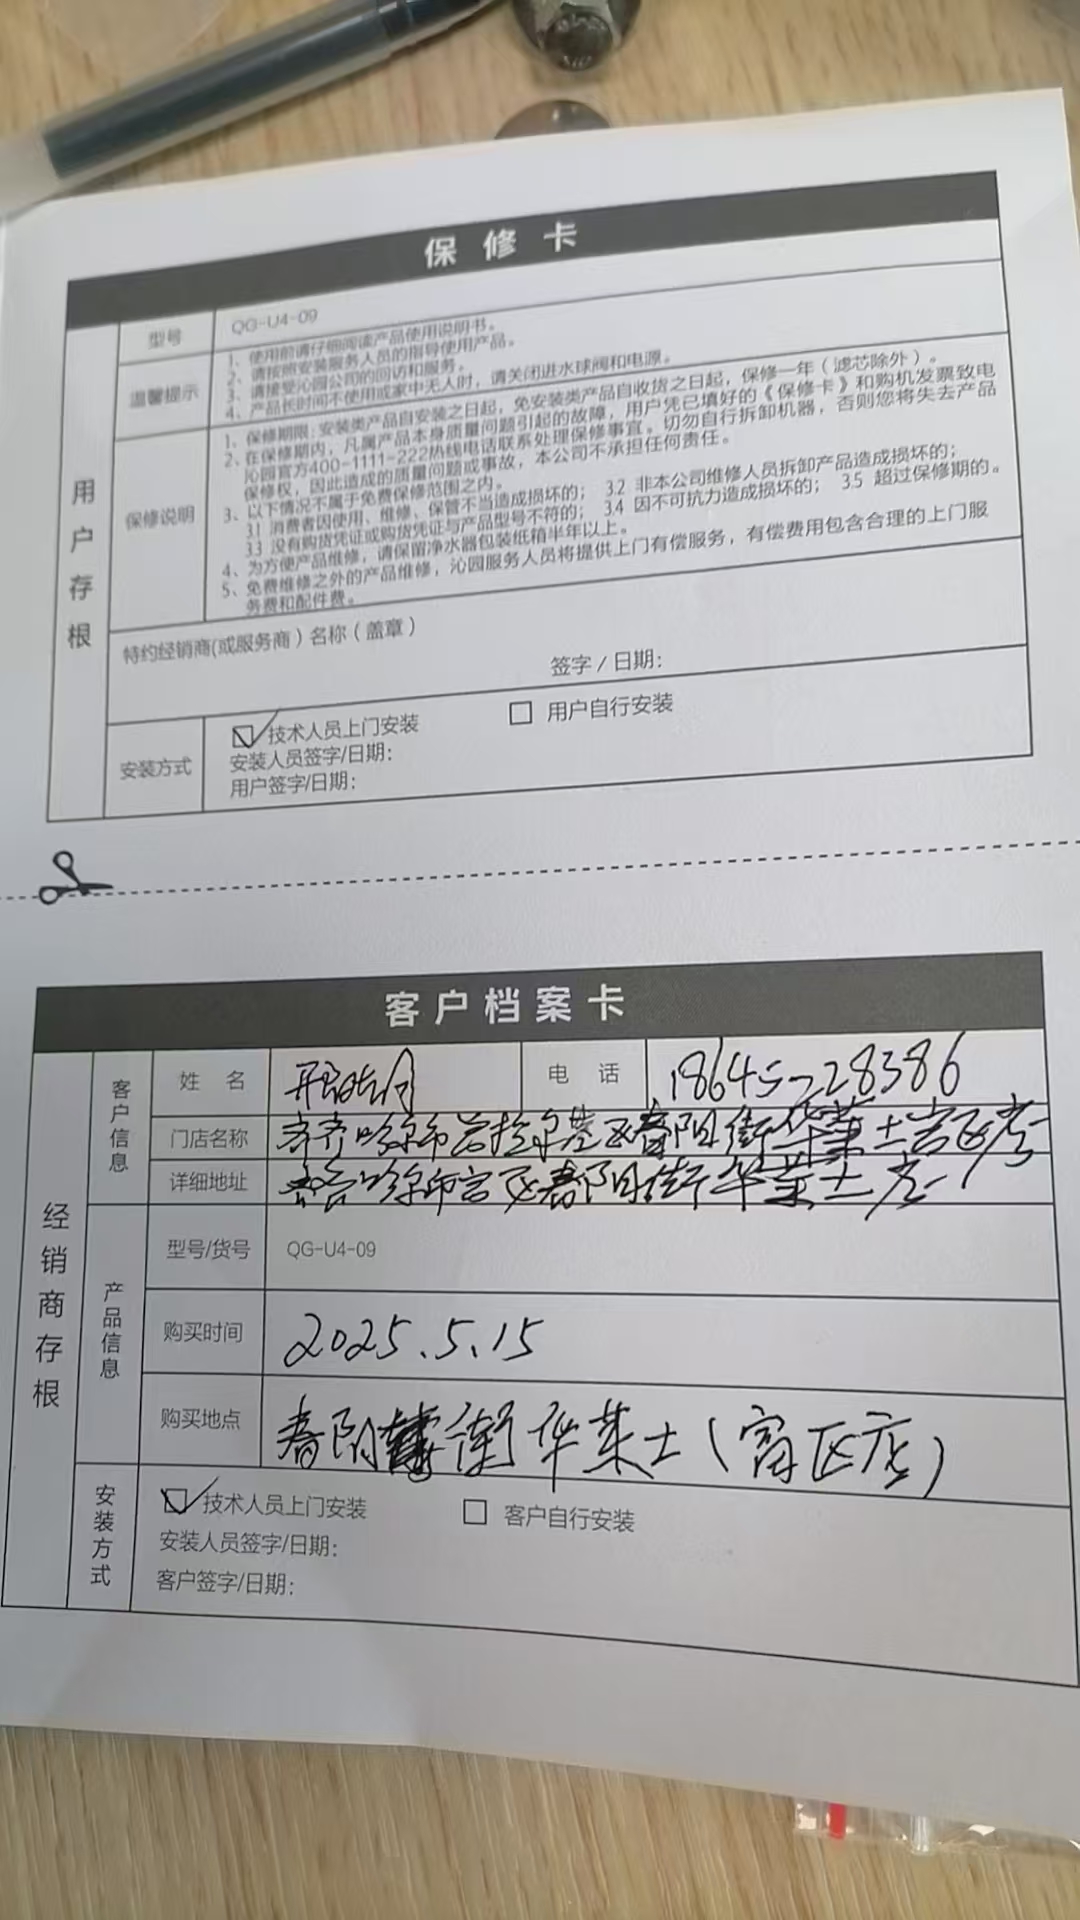 保修卡
用户存根
型号 QG-U4-09
温馨提示
1、使用前请仔细阅读产品使用说明书。
2、请按照安装服务人员的指导使用产品。
3、请接受沁园公司的回访和服务。
4、产品长时间不使用或家中无人时，请关闭进水球阀和电源。
保修说明
1、保修期限：安装类产品自安装之日起，免安装类产品自收货之日起，保修一年（滤芯除外）。
2、在保修期内，凡属产品本身质量问题引起的故障，用户凭已填好的《保修卡》和购机发票致电
沁园官方400-1111-222热线电话联系处理保修事宜。切勿自行拆卸机器，否则您将失去产品
保修权，因此造成的质量问题或事故，本公司不承担任何责任。
3、以下情况不属于免费保修范围之内。
3.1 消费者因使用、维修、保管不当造成损坏的； 3.2 非本公司维修人员拆卸产品造成损坏的；
3.3 没有购货凭证或购货凭证与产品型号不符的； 3.4 因不可抗力造成损坏的； 3.5 超过保修期的。
4、为方便产品维修，请保留净水器包装纸箱半年以上。
5、免费维修之外的产品维修，沁园服务人员将提供上门有偿服务，有偿费用包含合理的上门服
务费和配件费。
特约经销商(或服务商)名称（盖章）
签字/日期：
安装方式
技术人员上门安装 用户自行安装
安装人员签字/日期：
用户签字/日期：
客户档案卡
经销商存根
客户信息
姓 名 电 话 18645728386
门店名称 齐齐哈尔市 区春阳街华莱士富区店
详细地址 富区春阳街华莱士店
产品信息
型号/货号 QG-U4-09
购买时间 2025.5.15
购买地点 春阳街华莱士（富区店）
安装方式
技术人员上门安装 客户自行安装
安装人员签字/日期：
客户签字/日期：